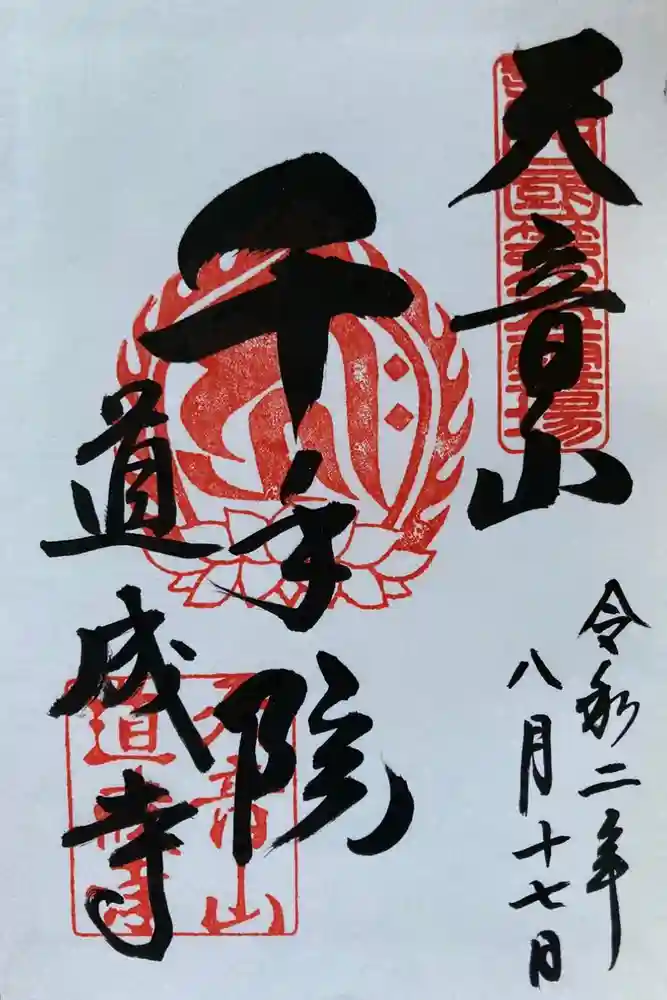 天音山
令和二年
八月十七日
千手院
道成寺
天音山
道成寺